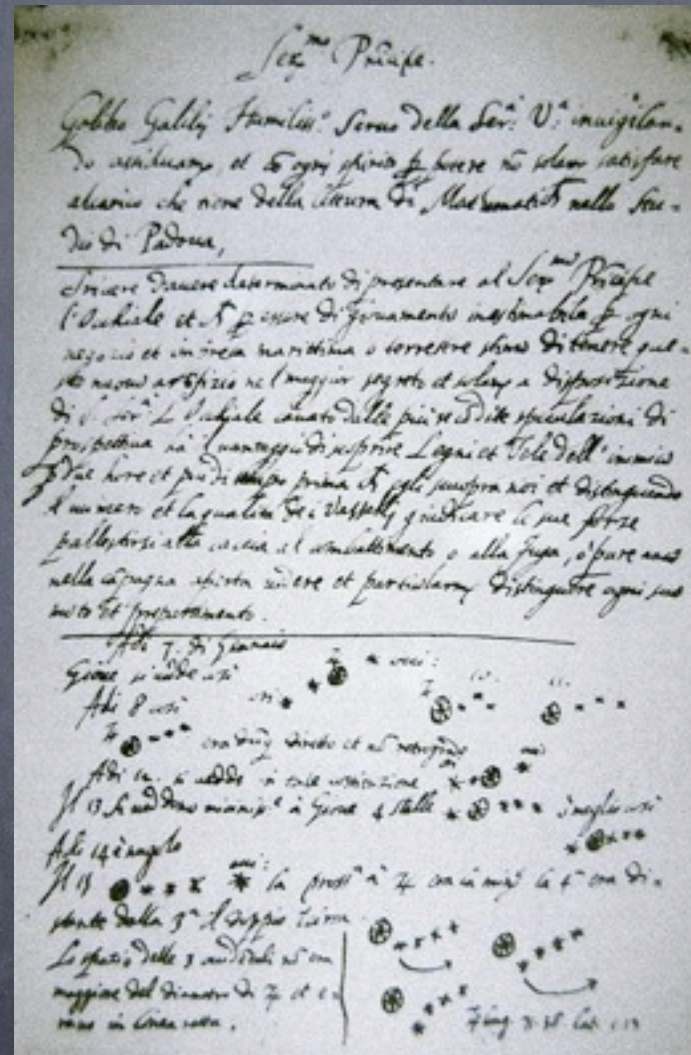 Ser.mo Principe.
Galileo Galilei Humiliss.o Servo della Ser.a V.a invigilan-
do assiduam.te, et ogni spirito potere nō solam.te satisfare
alcarico che tiene della lettura di Mathematich nello Stu-
dio di Padova,
Scrivere d'avere determinato di presentare al Ser.mo Principe
l'Occhiale et essere di giovamento inestimabile ogni
negozio et impresa marittima o terrestre stimo di tenere que-
sto nuovo artifizio nel maggior segreto et solam.te a disposizione
di S. Ser.a L'Occhiale cavato dalle più recōdite speculazioni di
prospettiva ha il vantaggio di scoprire Legni et Vele dell'inimico
due hore et più di tempo prima egli scuopra noi et distinguendo
il numero et la qualità de i Vasselli giudicare le sue forze
pallestirsi alla caccia al combattimento o alla fuga, o pure anco
nella cāpagna aperta vedere et particolarm.te distinguere ogni suo
moto et preparamento.
Adi 7. di Gennaio
Gioue si vede così
Adi 8 così
era dūq diretto et nō retrogrado
Adi 12. si vedde in tale costituzione
Il 13 si veddono à Gioue 4 stelle meglio così
Adi 14 è nugolo
Il 15 la pross.a à era la 4.a era di-
stante dalla 3.a il doppio
Lo spatio delle 3 nō era
maggiore del diametro di et e-
rano in linea retta.